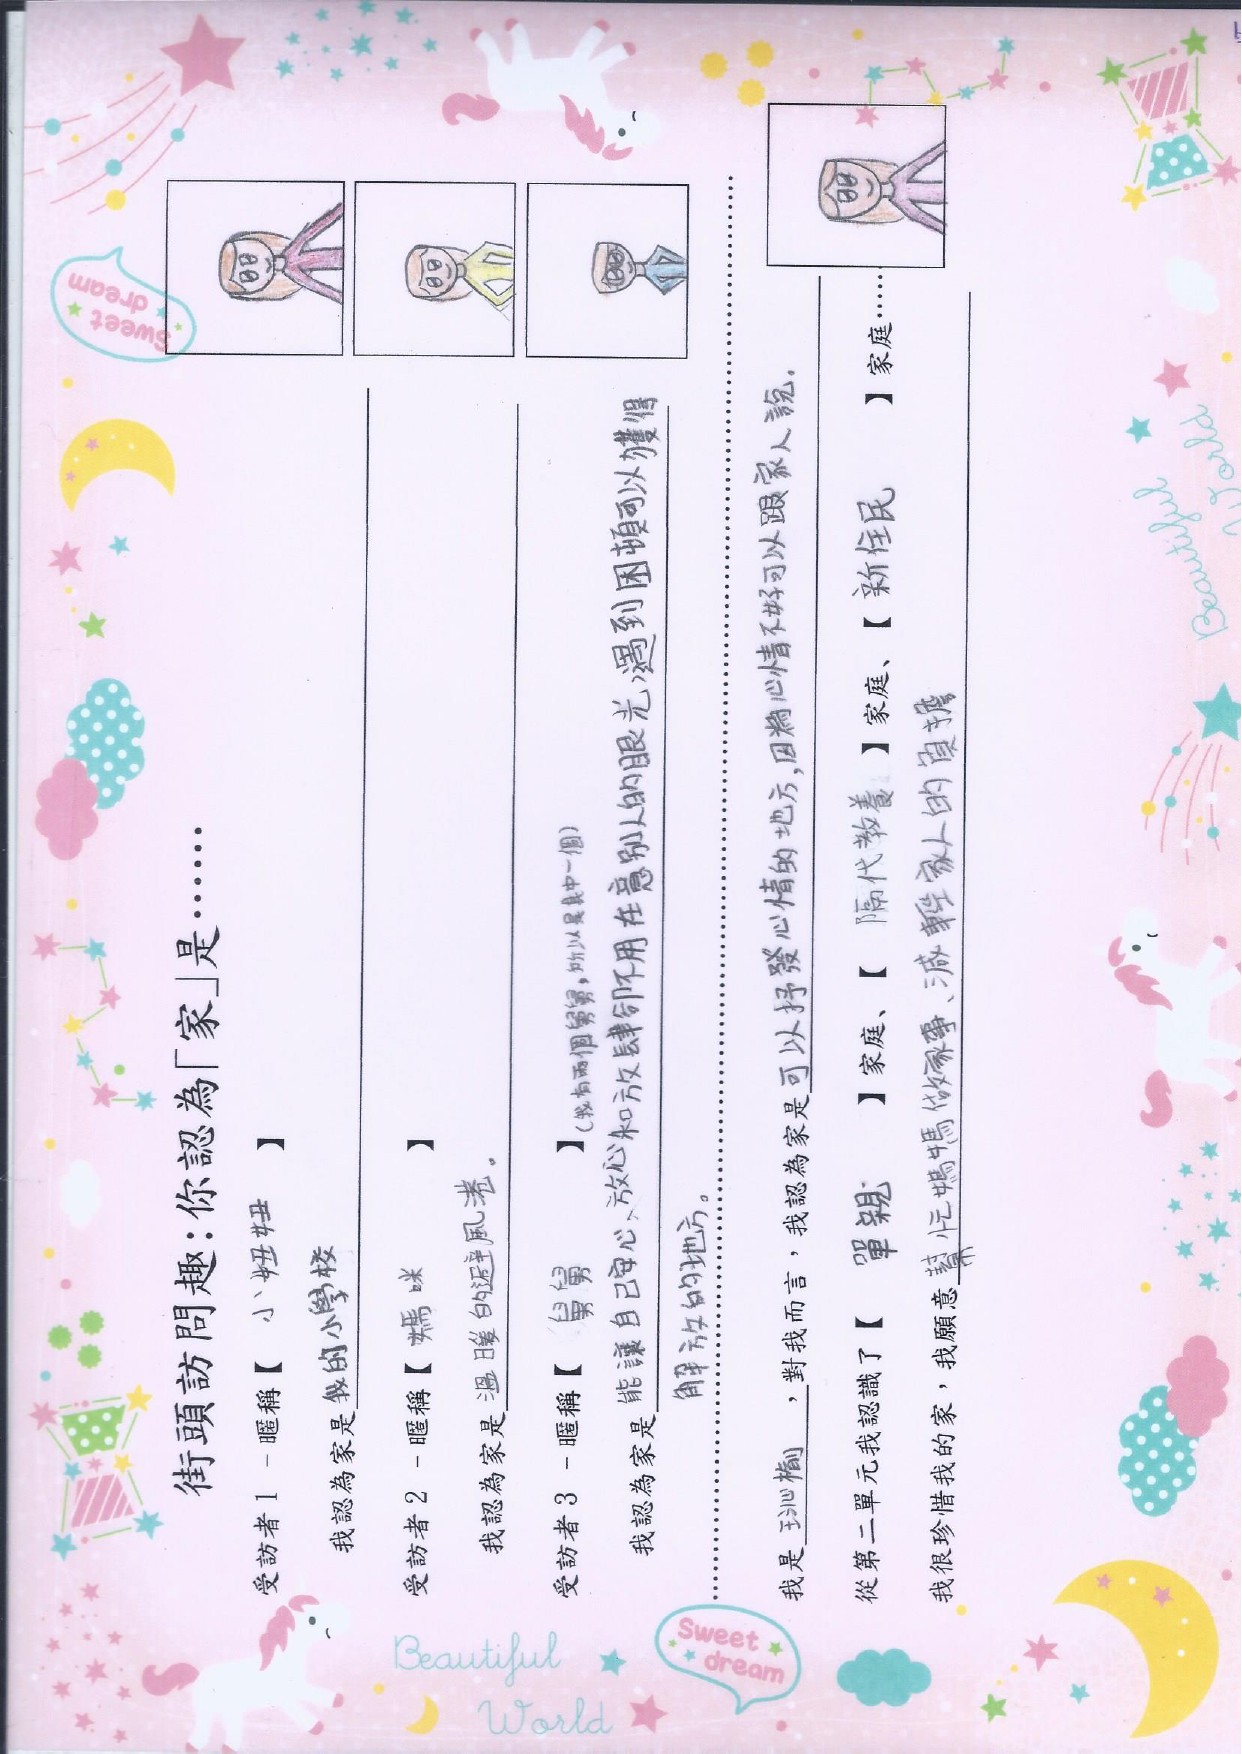 街頭訪問趣：你認為「家」是……
受訪者1－暱稱【 小妞妞 】
我認為家是我的小學校
受訪者2－暱稱【 媽咪 】
我認為家是溫暖的避風港。
受訪者3－暱稱【 舅舅 】(我有兩個舅舅,所以是其中一個)
我認為家是能讓自己安心、放心和放肆卻不用在意別人的眼光,遇到困頓可以獲得
解放的地方。
我是，對我而言，我認為家是可以抒發心情的地方,因為心情不好可以跟家人說.
從第二單元我認識了【 單親 】家庭、【 隔代教養 】家庭、【 新住民 】家庭……
我很珍惜我的家，我願意幫忙媽媽做家事、減輕家人的負擔
Sweet dream
Sweet dream
Beautiful World
Beautiful World